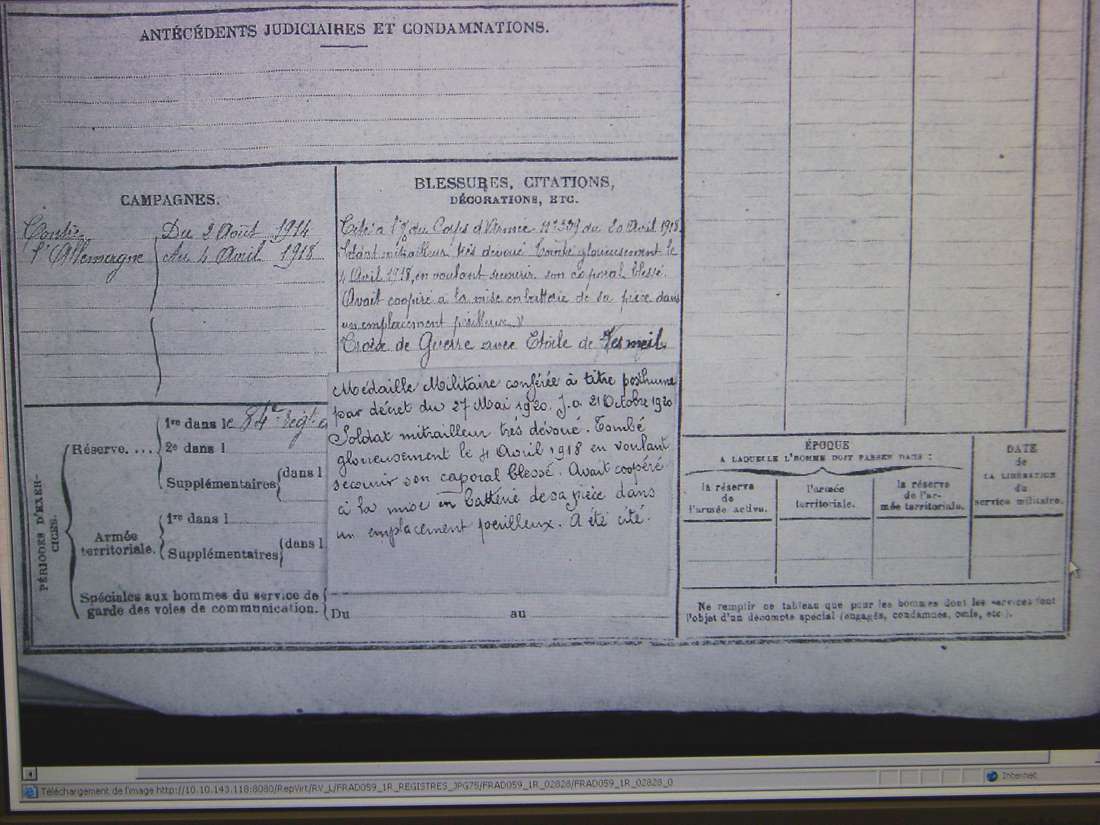 ANTÉCÉDENTS JUDICIAIRES ET CONDAMNATIONS.
CAMPAGNES.
Contre
l'Allemagne
Du 2 Août 1914
Au 4 Avril 1918
BLESSURES, CITATIONS,
DÉCORATIONS, ETC.
Cité à l' du Corps d'Armée n° du 20 Avril 1918
Soldat mitrailleur très dévoué Tombé glorieusement le
4 Avril 1918, en voulant secourir son caporal blessé.
Avait coopéré à la mise en batterie de sa pièce dans
un emplacement périlleux
Croix de Guerre avec Etoile de Vermeil
Médaille Militaire conférée à titre posthume
par décret du 27 Mai 1920. J.o. 21 Octobre 1920
Soldat mitrailleur très dévoué. Tombé
glorieusement le 4 Avril 1918 en voulant
secourir son caporal blessé. Avait coopéré
à la mise en batterie de sa pièce dans
un emplacement périlleux. A été cité.
PÉRIODES D'EXER-
CICES.
Réserve....
1re dans le 84e régt
2e dans l
Supplémentaires
dans l
Armée
territoriale.
1re dans l
Supplémentaires
dans l
Spéciales aux hommes du service de
garde des voies de communication.
Du au
ÉPOQUE
A LAQUELLE L'HOMME DOIT PASSER DANS :
la réserve
de
l'armée active.
l'armée
territoriale.
la réserve
de l'ar-
mée territoriale.
DATE
de
LA LIBÉRATION
du
service militaire.
Ne remplir ce tableau que pour les hommes dont les services font
l'objet d'un décompte spécial (engagés, condamnés, omis, etc.).
Téléchargement de l'image http://10.10.143.118:8080/RepVirt/RV_L/FRAD059_1R_REGISTRES_JPG75/FRAD059_1R_02828/FRAD059_1R_02828_0
Internet